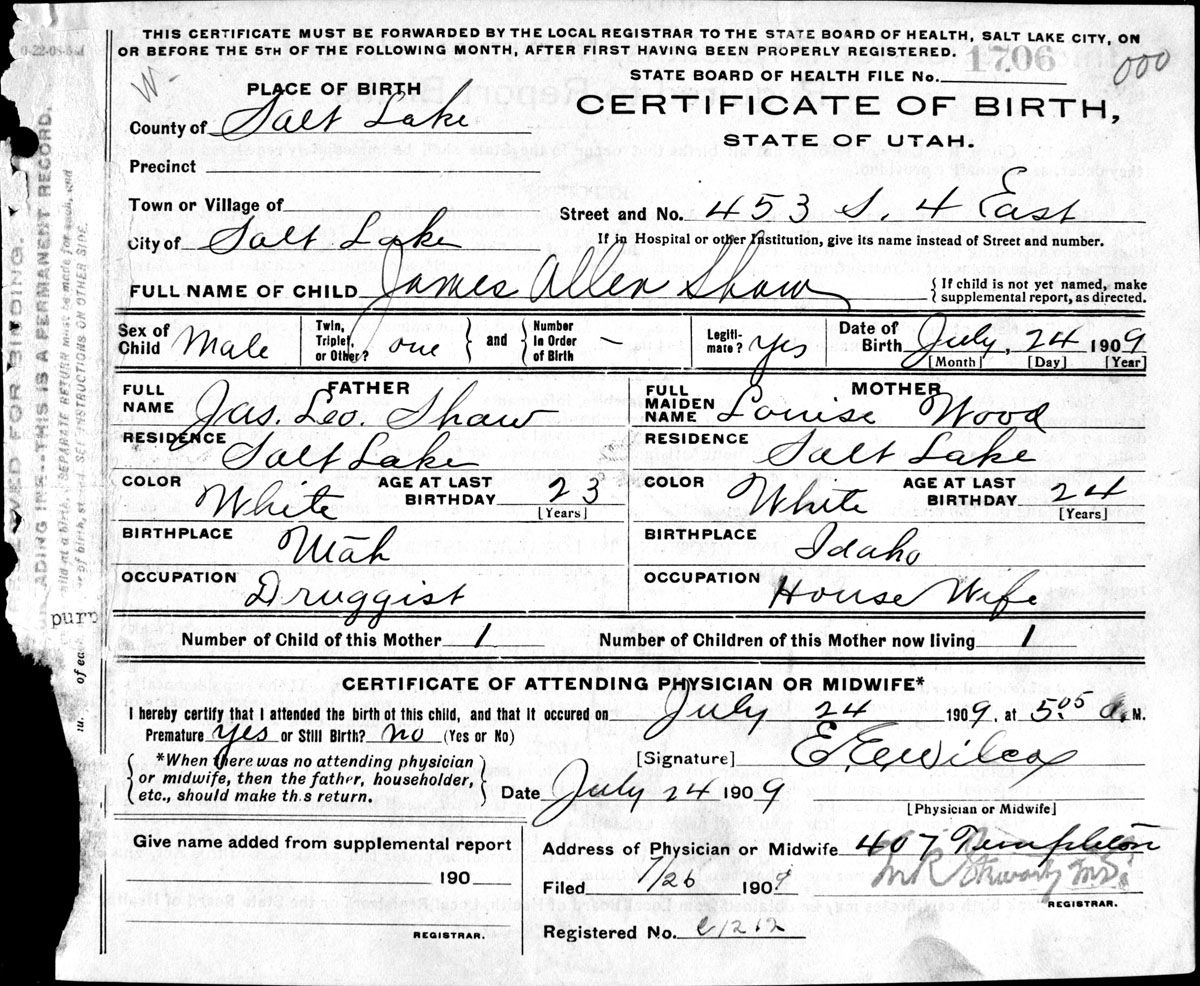 THIS CERTIFICATE MUST BE FORWARDED BY THE LOCAL REGISTRAR TO THE STATE BOARD OF HEALTH, SALT LAKE CITY, ON
OR BEFORE THE 5TH OF THE FOLLOWING MONTH, AFTER FIRST HAVING BEEN PROPERLY REGISTERED.
STATE BOARD OF HEALTH FILE No. 1706
000
PLACE OF BIRTH
CERTIFICATE OF BIRTH,
STATE OF UTAH.
County of Salt Lake
Precinct
Town or Village of
Street and No. 453 S. 4 East
City of Salt Lake
If in Hospital or other Institution, give its name instead of Street and number.
FULL NAME OF CHILD James Allen Shaw
{If child is not yet named, make
supplemental report, as directed.
Sex of Child Male
Twin, Triplet, or Other? one } and { Number in Order of Birth –
Legiti-mate? yes
Date of Birth July, 24 1909
[Month] [Day] [Year]
FATHER
FULL NAME Jas. Leo. Shaw
MOTHER
FULL MAIDEN NAME Louise Wood
RESIDENCE Salt Lake
RESIDENCE Salt Lake
COLOR White AGE AT LAST BIRTHDAY 23 [Years]
COLOR White AGE AT LAST BIRTHDAY 24 [Years]
BIRTHPLACE Utah
BIRTHPLACE Idaho
OCCUPATION Druggist
OCCUPATION House Wife
Number of Child of this Mother 1
Number of Children of this Mother now living 1
CERTIFICATE OF ATTENDING PHYSICIAN OR MIDWIFE*
I hereby certify that I attended the birth of this child, and that it occured on July 24 1909, at 5:05 a. M.
Premature yes or Still Birth? no (Yes or No)
[Signature] E. E. Wilcox
*When there was no attending physician
or midwife, then the father, householder,
etc., should make th.s return.
Date July 24 1909
[Physician or Midwife]
Give name added from supplemental report
190
REGISTRAR.
Address of Physician or Midwife 407 Templeton
Filed 7/26 1909
REGISTRAR.
Registered No.
RESERVED FOR BINDING.
ADING INK---THIS IS A PERMANENT RECORD.
child at a birth, a SEPARATE RETURN must be made for each, and
of birth, stated. SEE INSTRUCTIONS ON OTHER SIDE.
purp
of ea